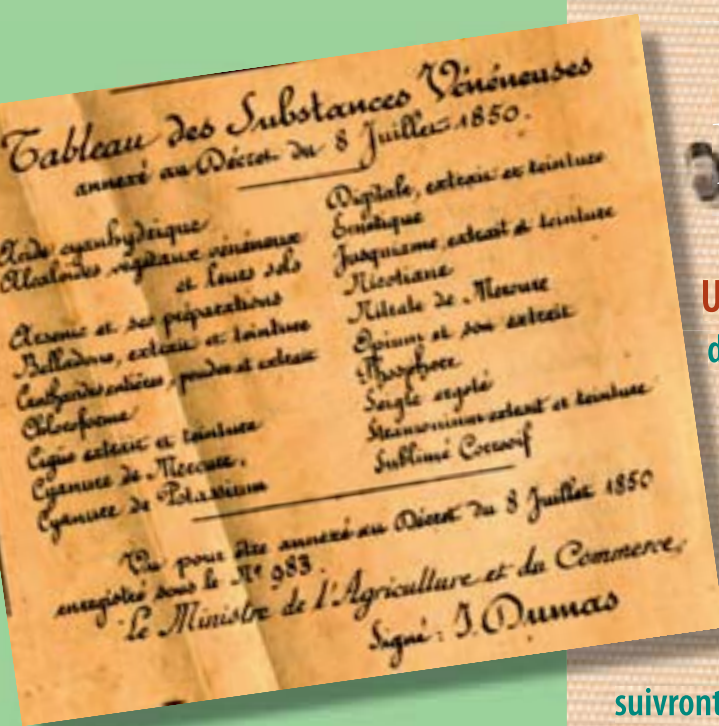 Tableau des Substances Vénéneuses
annexé au Décret du 8 Juillet 1850.
Acide cyanhydrique
Alcaloïdes végétaux vénéneux
et leurs sels
Arsenic et ses préparations
Belladone, extrait et teinture
Cantharides entières, poudre et extrait
Chloroforme
Cigue extrait et teinture
Cyanure de Mercure.
Cyanure de Potassium
Digitale, extrait et teinture
Emétique
Jusquiame, extrait et teinture
Nicotiane
Nitrate de Mercure
Opium et son extrait
Phosphore
Seigle ergoté
Stramonium extrait et teinture
Sublimé Corrosif
Vu pour être annexé au Décret du 8 Juillet 1850
enregistré sous le Nº 983.
Le Ministre de l'Agriculture et du Commerce,
Signé : J. Dumas
U
d
suivront